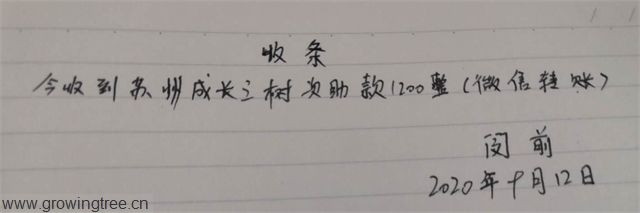 收条
今收到苏州成长之树资助款1200整(微信转账)
闵前
2020年十月12日
www.growingtree.cn